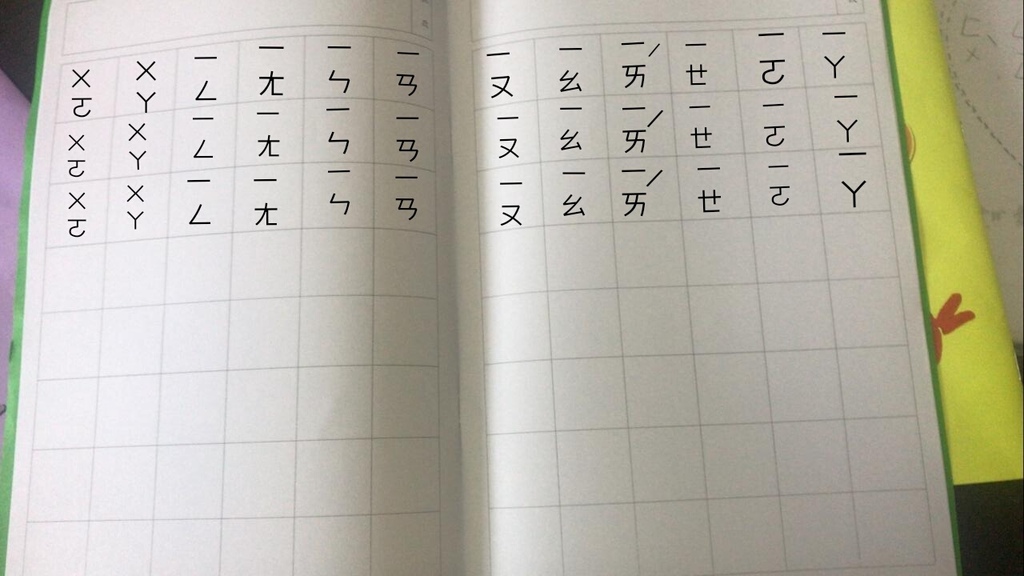 ㄧㄚ ㄧㄚ ㄧㄚ
ㄧㄛ ㄧㄛ ㄧㄛ
ㄧㄝ ㄧㄝ ㄧㄝ
ㄧㄞˊ ㄧㄞˊ ㄧㄞˊ
ㄧㄠ ㄧㄠ ㄧㄠ
ㄧㄡ ㄧㄡ ㄧㄡ
ㄧㄢ ㄧㄢ ㄧㄢ
ㄧㄣ ㄧㄣ ㄧㄣ
ㄧㄤ ㄧㄤ ㄧㄤ
ㄧㄥ ㄧㄥ ㄧㄥ
ㄨㄚ ㄨㄚ ㄨㄚ
ㄨㄛ ㄨㄛ ㄨㄛ